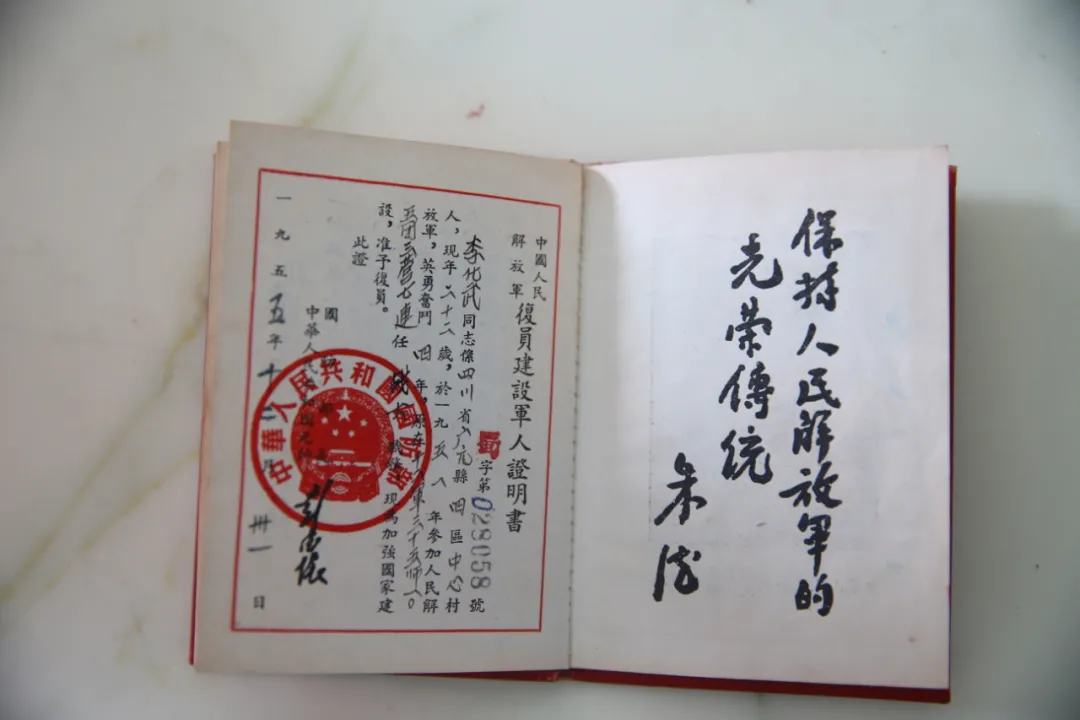 保持人民解放軍的
光荣傳統
朱德
中國人民
解放軍
復員建設軍人證明書
字第028058號
李化武同志係四川省廣元縣四區中心村
人，現年二十二歲，於一九五 年參加人民解
放軍，英勇奮鬥四年，原在 軍三十五師一〇
五团三营七連任 現為加強國家建
設，准予復員。
此證
國防部
中華人民共和國元帥
彭德懷
一九五五年十二月卅一日
中華人民共和國國防部